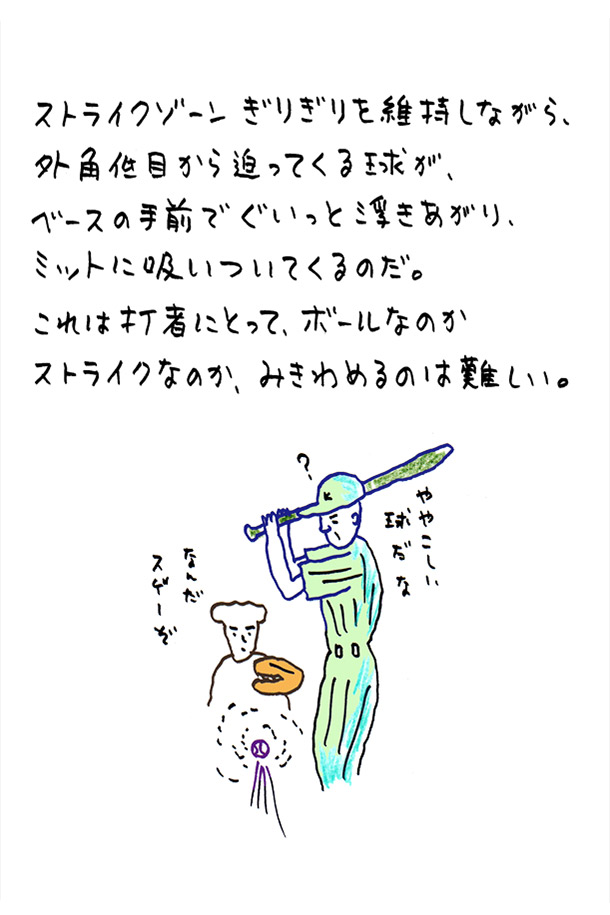 ストライクゾーンぎりぎりを維持しながら、
外角低目から迫ってくる球が、
ベースの手前でぐいっと浮きあがり、
ミットに吸いついてくるのだ。
これは打者にとって、ボールなのか
ストライクなのか、みきわめるのは難しい。
?
K
ややこしい
球だな
なんだ
スゲーぞ